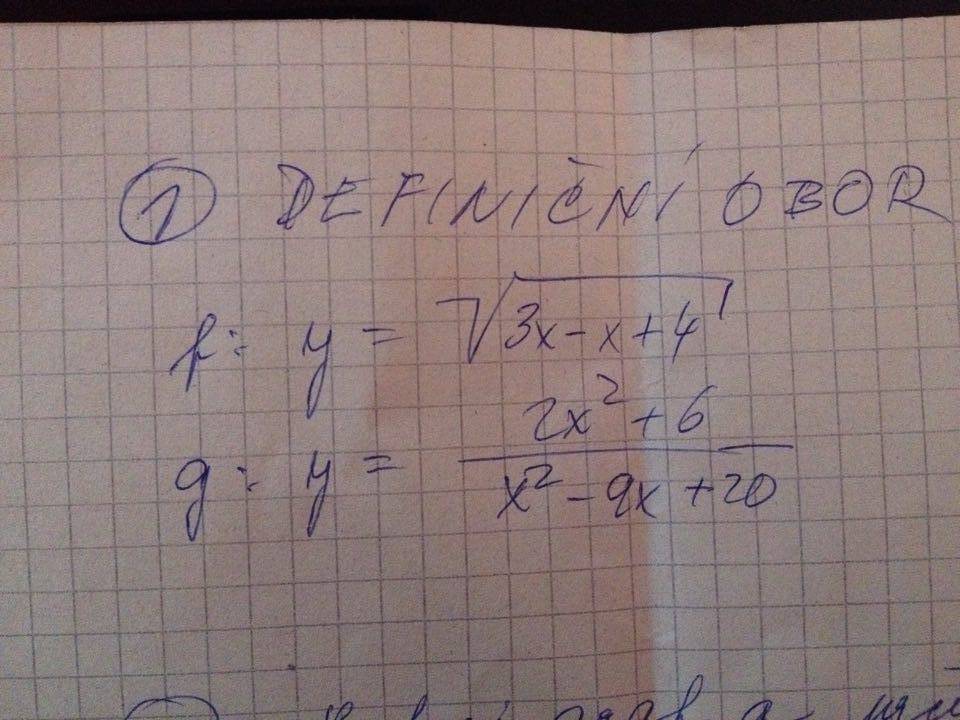 ① DEFINIČNÍ OBOR
f: y = √(3x-x+4)
g: y = (2x²+6)/(x²-9x+20)